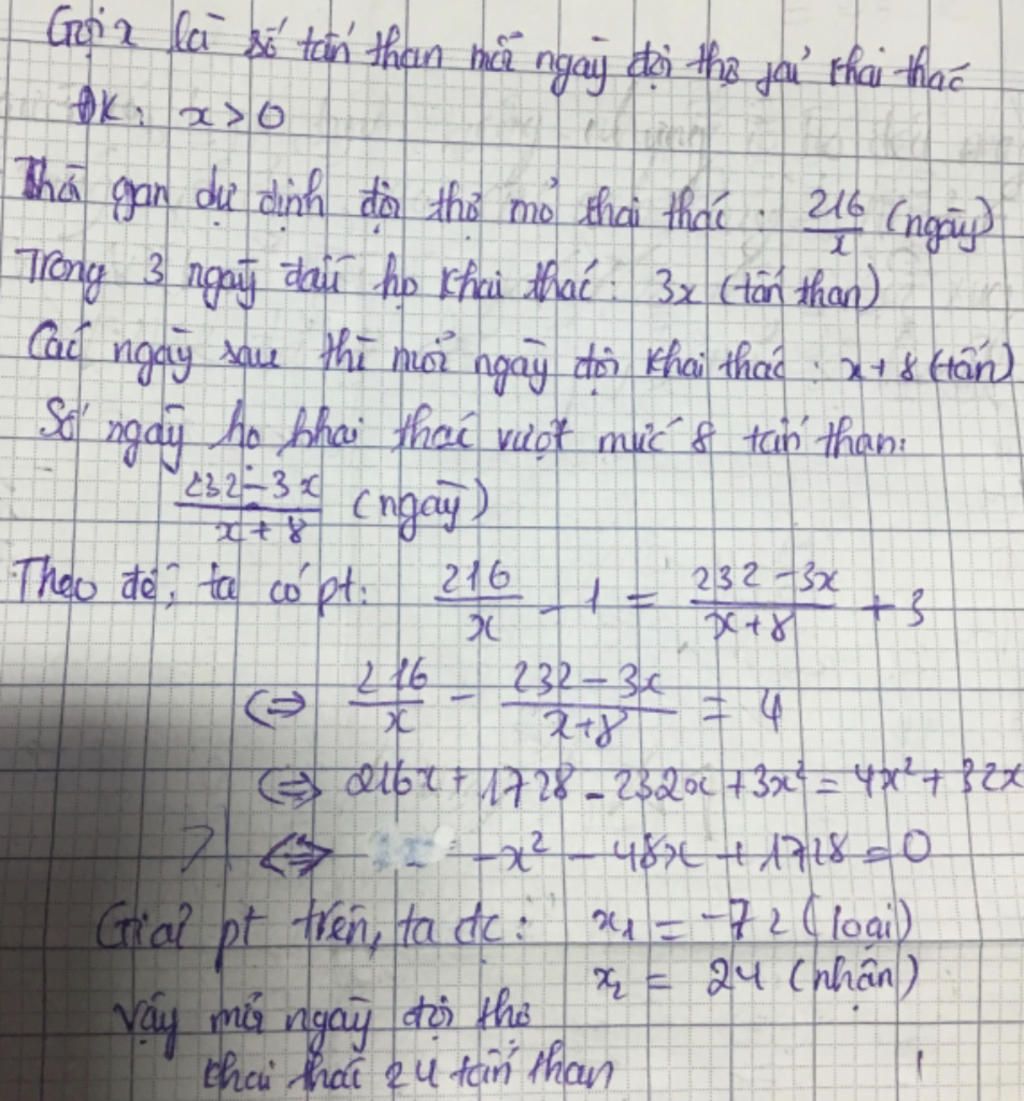 Gọi x là số tấn than mỗi ngày đội thợ phải khai thác
ĐK: x > 0
Thời gian dự định đội thợ mỏ khai thác: 216/x (ngày)
Trong 3 ngày đầu họ khai thác: 3x (tấn than)
Các ngày sau thì mỗi ngày đội khai thác: x + 8 (tấn)
Số ngày họ khai thác vượt mức 8 tấn than:
(232 - 3x)/(x + 8) (ngày)
Theo đề, ta có pt: 216/x - 1 = (232 - 3x)/(x + 8) + 3
⇔ 216/x - (232 - 3x)/(x + 8) = 4
⇔ 216x + 1728 - 232x + 3x² = 4x² + 32x
⇔ -x² - 48x + 1728 = 0
Giải pt trên, ta đc: x₁ = -72 (loại)
x₂ = 24 (nhận)
Vậy mỗi ngày đội thợ
khai thác 24 tấn than